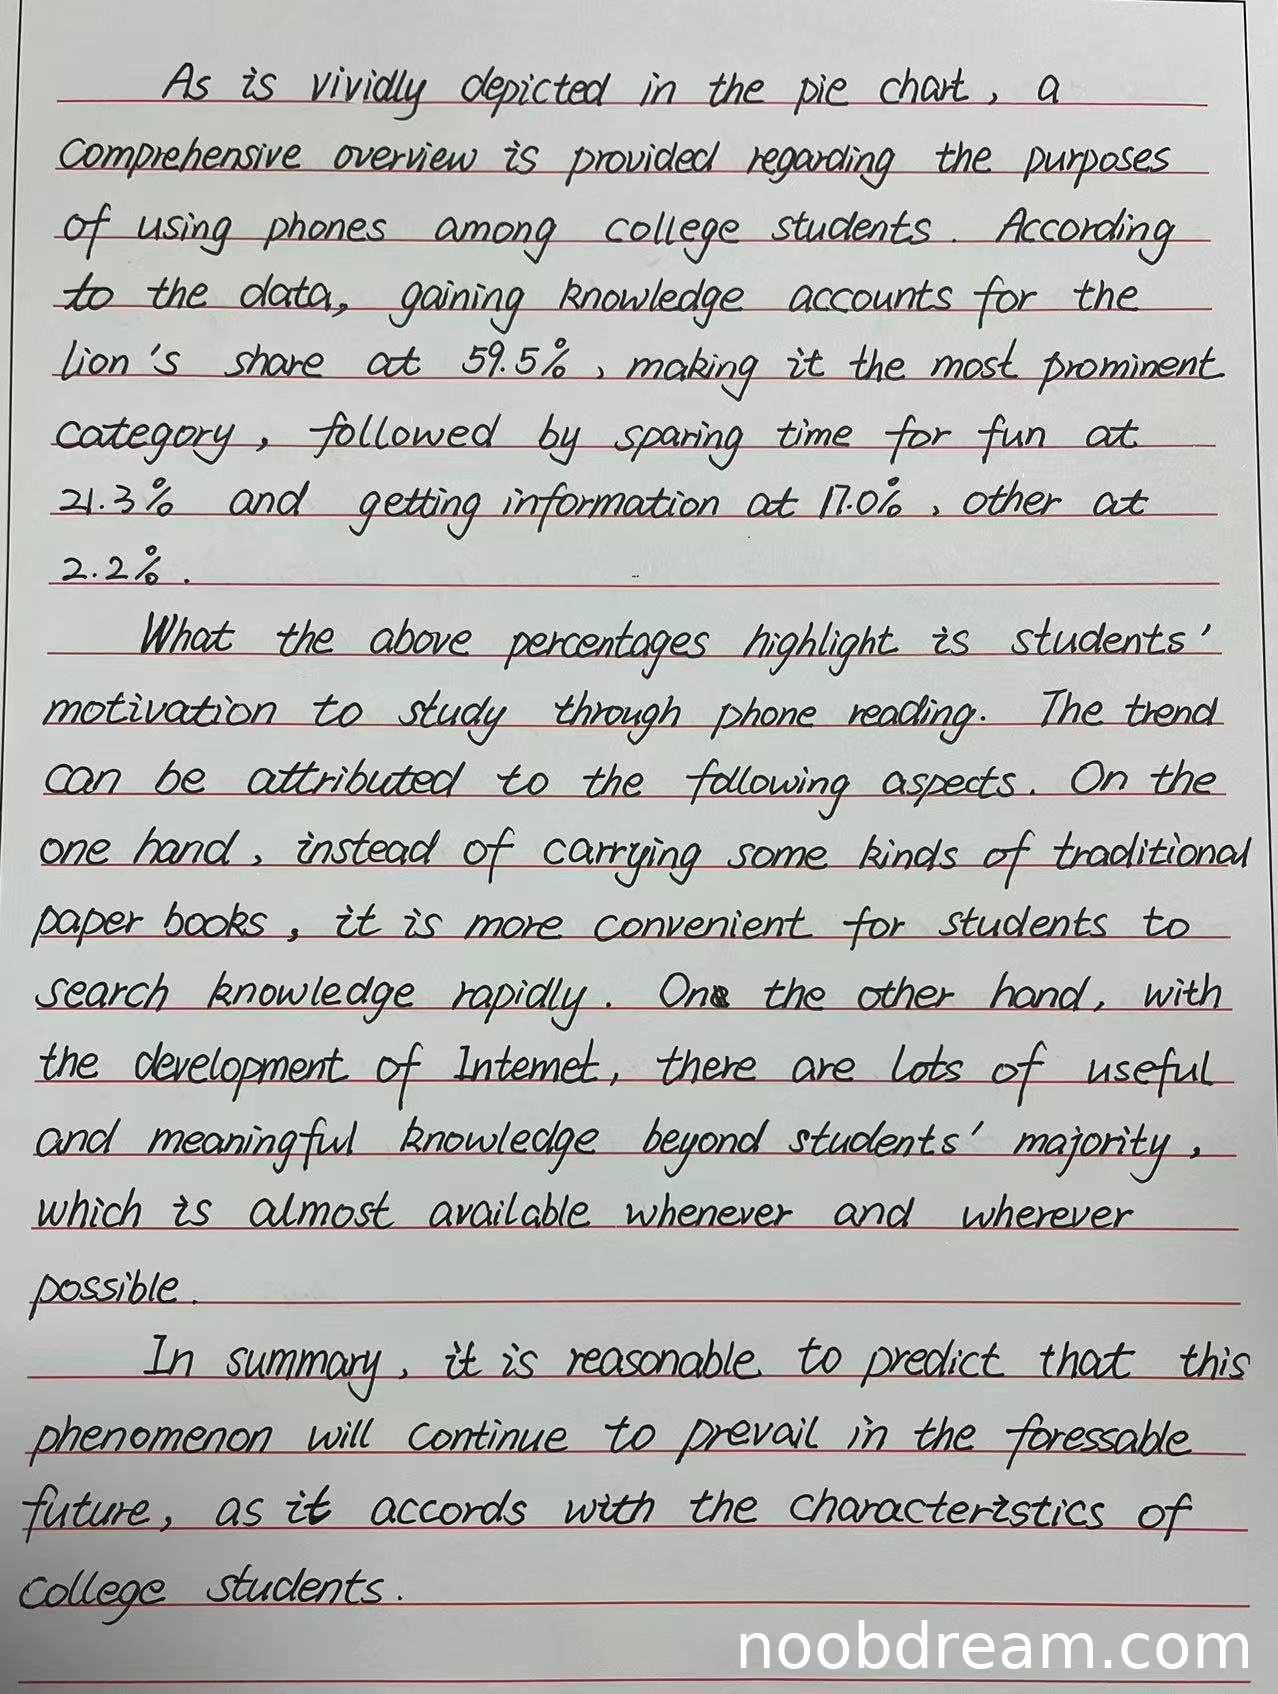 As is vividly depicted in the pie chart, a
comprehensive overview is provided regarding the purposes
of using phones among college students. According
to the data, gaining knowledge accounts for the
lion's share at 59.5%, making it the most prominent
category, followed by sparing time for fun at
21.3% and getting information at 17.0%, other at
2.2%.
What the above percentages highlight is students'
motivation to study through phone reading. The trend
can be attributed to the following aspects. On the
one hand, instead of carrying some kinds of traditional
paper books, it is more convenient for students to
search knowledge rapidly. On the other hand, with
the development of Internet, there are lots of useful
and meaningful knowledge beyond students' majority,
which is almost available whenever and wherever
possible.
In summary, it is reasonable to predict that this
phenomenon will continue to prevail in the foressable
future, as it accords with the characteristics of
college students.
noobdream.com